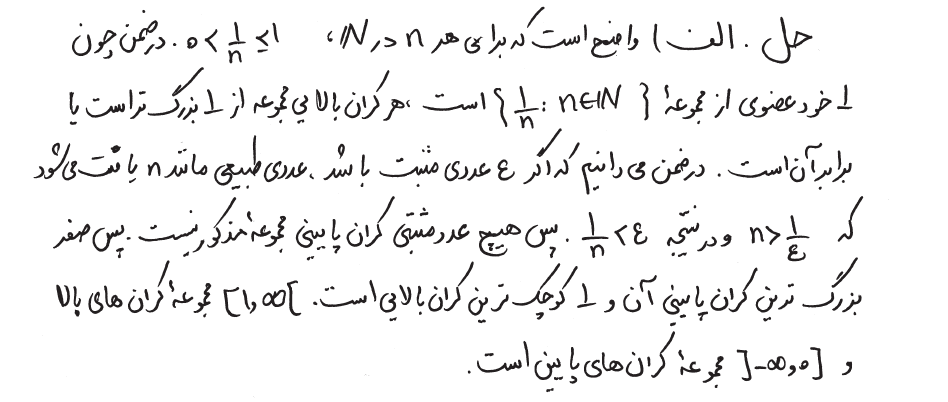 حل. الف) واضح است که برای هر n در ℕ، 0 < 1/n ≤ 1. در ضمن چون
1 خود عضوی از مجموعهٔ {1/n : n∈ℕ} است، هر کران بالایی مجموعه از 1 بزرگ تر است یا
برابر آن است. در ضمن می دانیم که اگر ε عددی مثبت باشد، عددی طبیعی مانند n یافت می شود
که n > 1/ε و در نتیجه 1/n < ε. پس هیچ عدد مثبتی کران پایینی مجموعهٔ مذکور نیست. پس صفر
بزرگ ترین کران پایینی آن و 1 کوچک ترین کران بالایی است. [1,∞[ مجموعهٔ کران های بالا
و ]-∞,0] مجموعهٔ کران های پایین است.